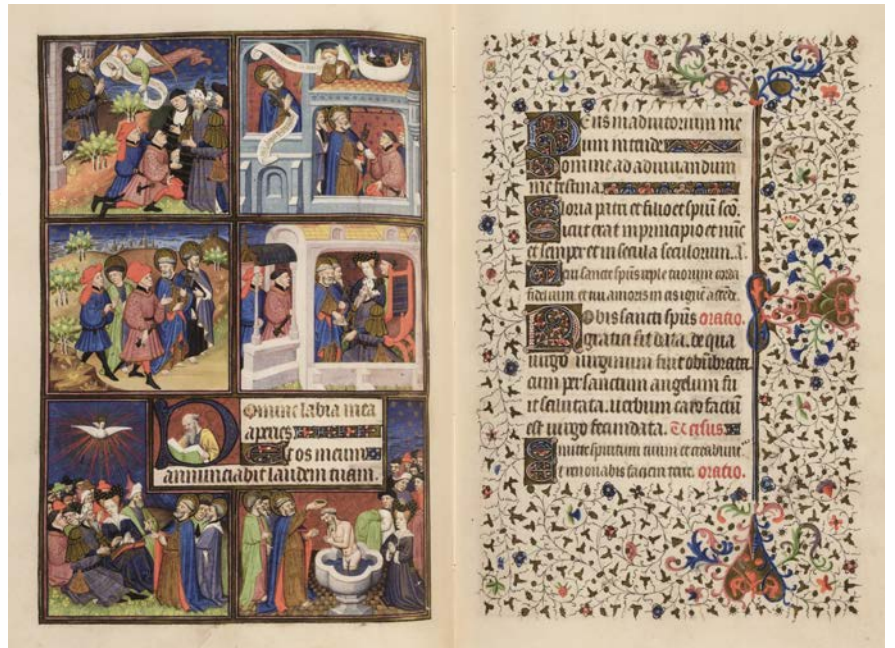 Domine labia mea
aperies
Et os meum
annunciabit laudem tuam.
Deus in adiutorium me
um intende
Domine ad adiuuandum
me festina.
Gloria patri et filio et spũi sc̃o.
Sicut erat in principio et nũc
et semper et in secula seculorum. A.
Veni sancte spũs reple tuorum corda
fidelium. et tui amoris in eis ignẽ accẽde.
Nobis sancti spũs oratio.
gratia sit data. de qua
uirgo uirginum fuit obũbrata
cum per sanctum angelum fu
it salutata. Uerbum caro factũ
est uirgo fecundata.
Emitte spiritum tuum et creabunt
et renouabis faciem terre. oratio.